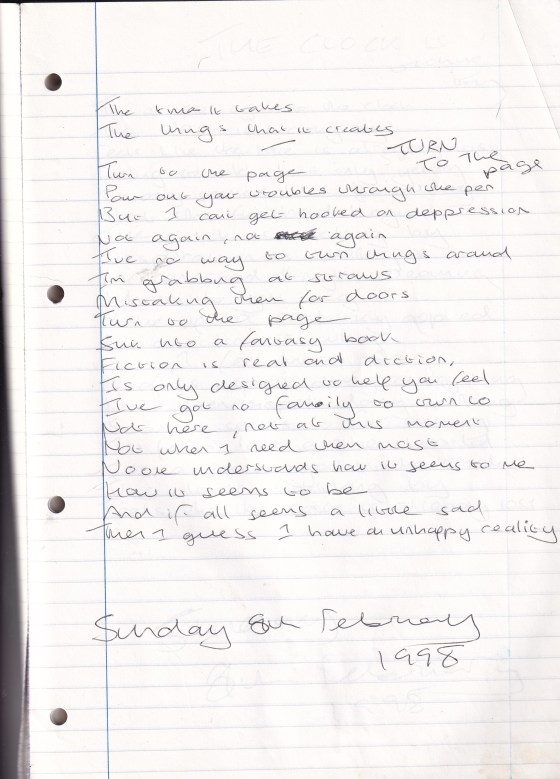 The time it takes
The things that it creates
TURN TO THE page
Turn to the page
Pour out your troubles through the pen
But I cant get hooked on deppression
Not again, not again
I've no way to turn things around
I'm grabbing at straws
Mistaking them for doors
Turn to the page
Sink into a fantasy book
Fiction is real and diction,
Is only designed to help you feel
I've got no family to turn to
Not here, not at this moment
Not when I need them most
No one understands how it seems to me
How it seems to be
And if all seems a little sad
Then I guess I have an unhappy reality
Sunday 8th February
1998